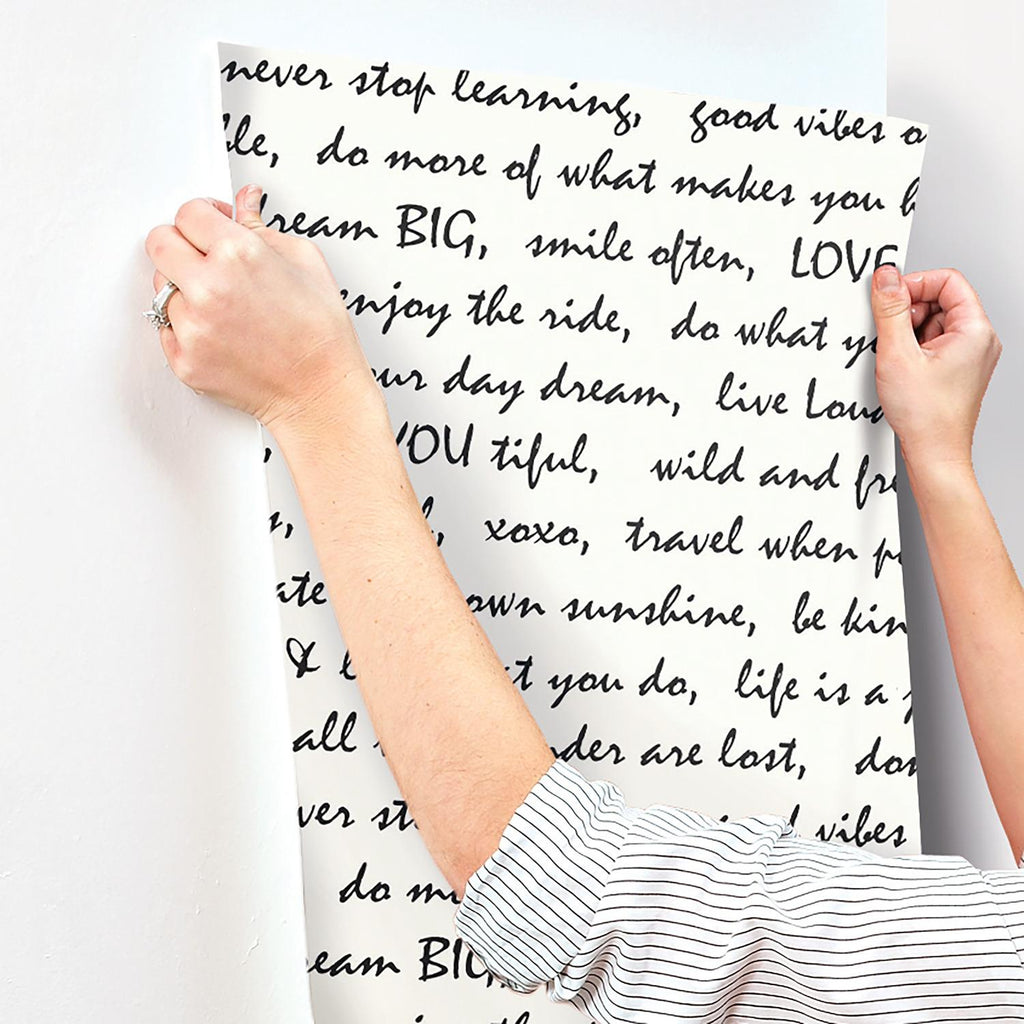 never stop learning, good vibes o
ble, do more of what makes you h
dream BIG, smile often, LOVE
enjoy the ride, do what yo
our day dream, live Loud
YOU tiful, wild and fre
s, xoxo, travel when p
ate own sunshine, be kin
& l t you do, life is a
all nder are lost, don
ver st vibes
do mo
ream BIG,